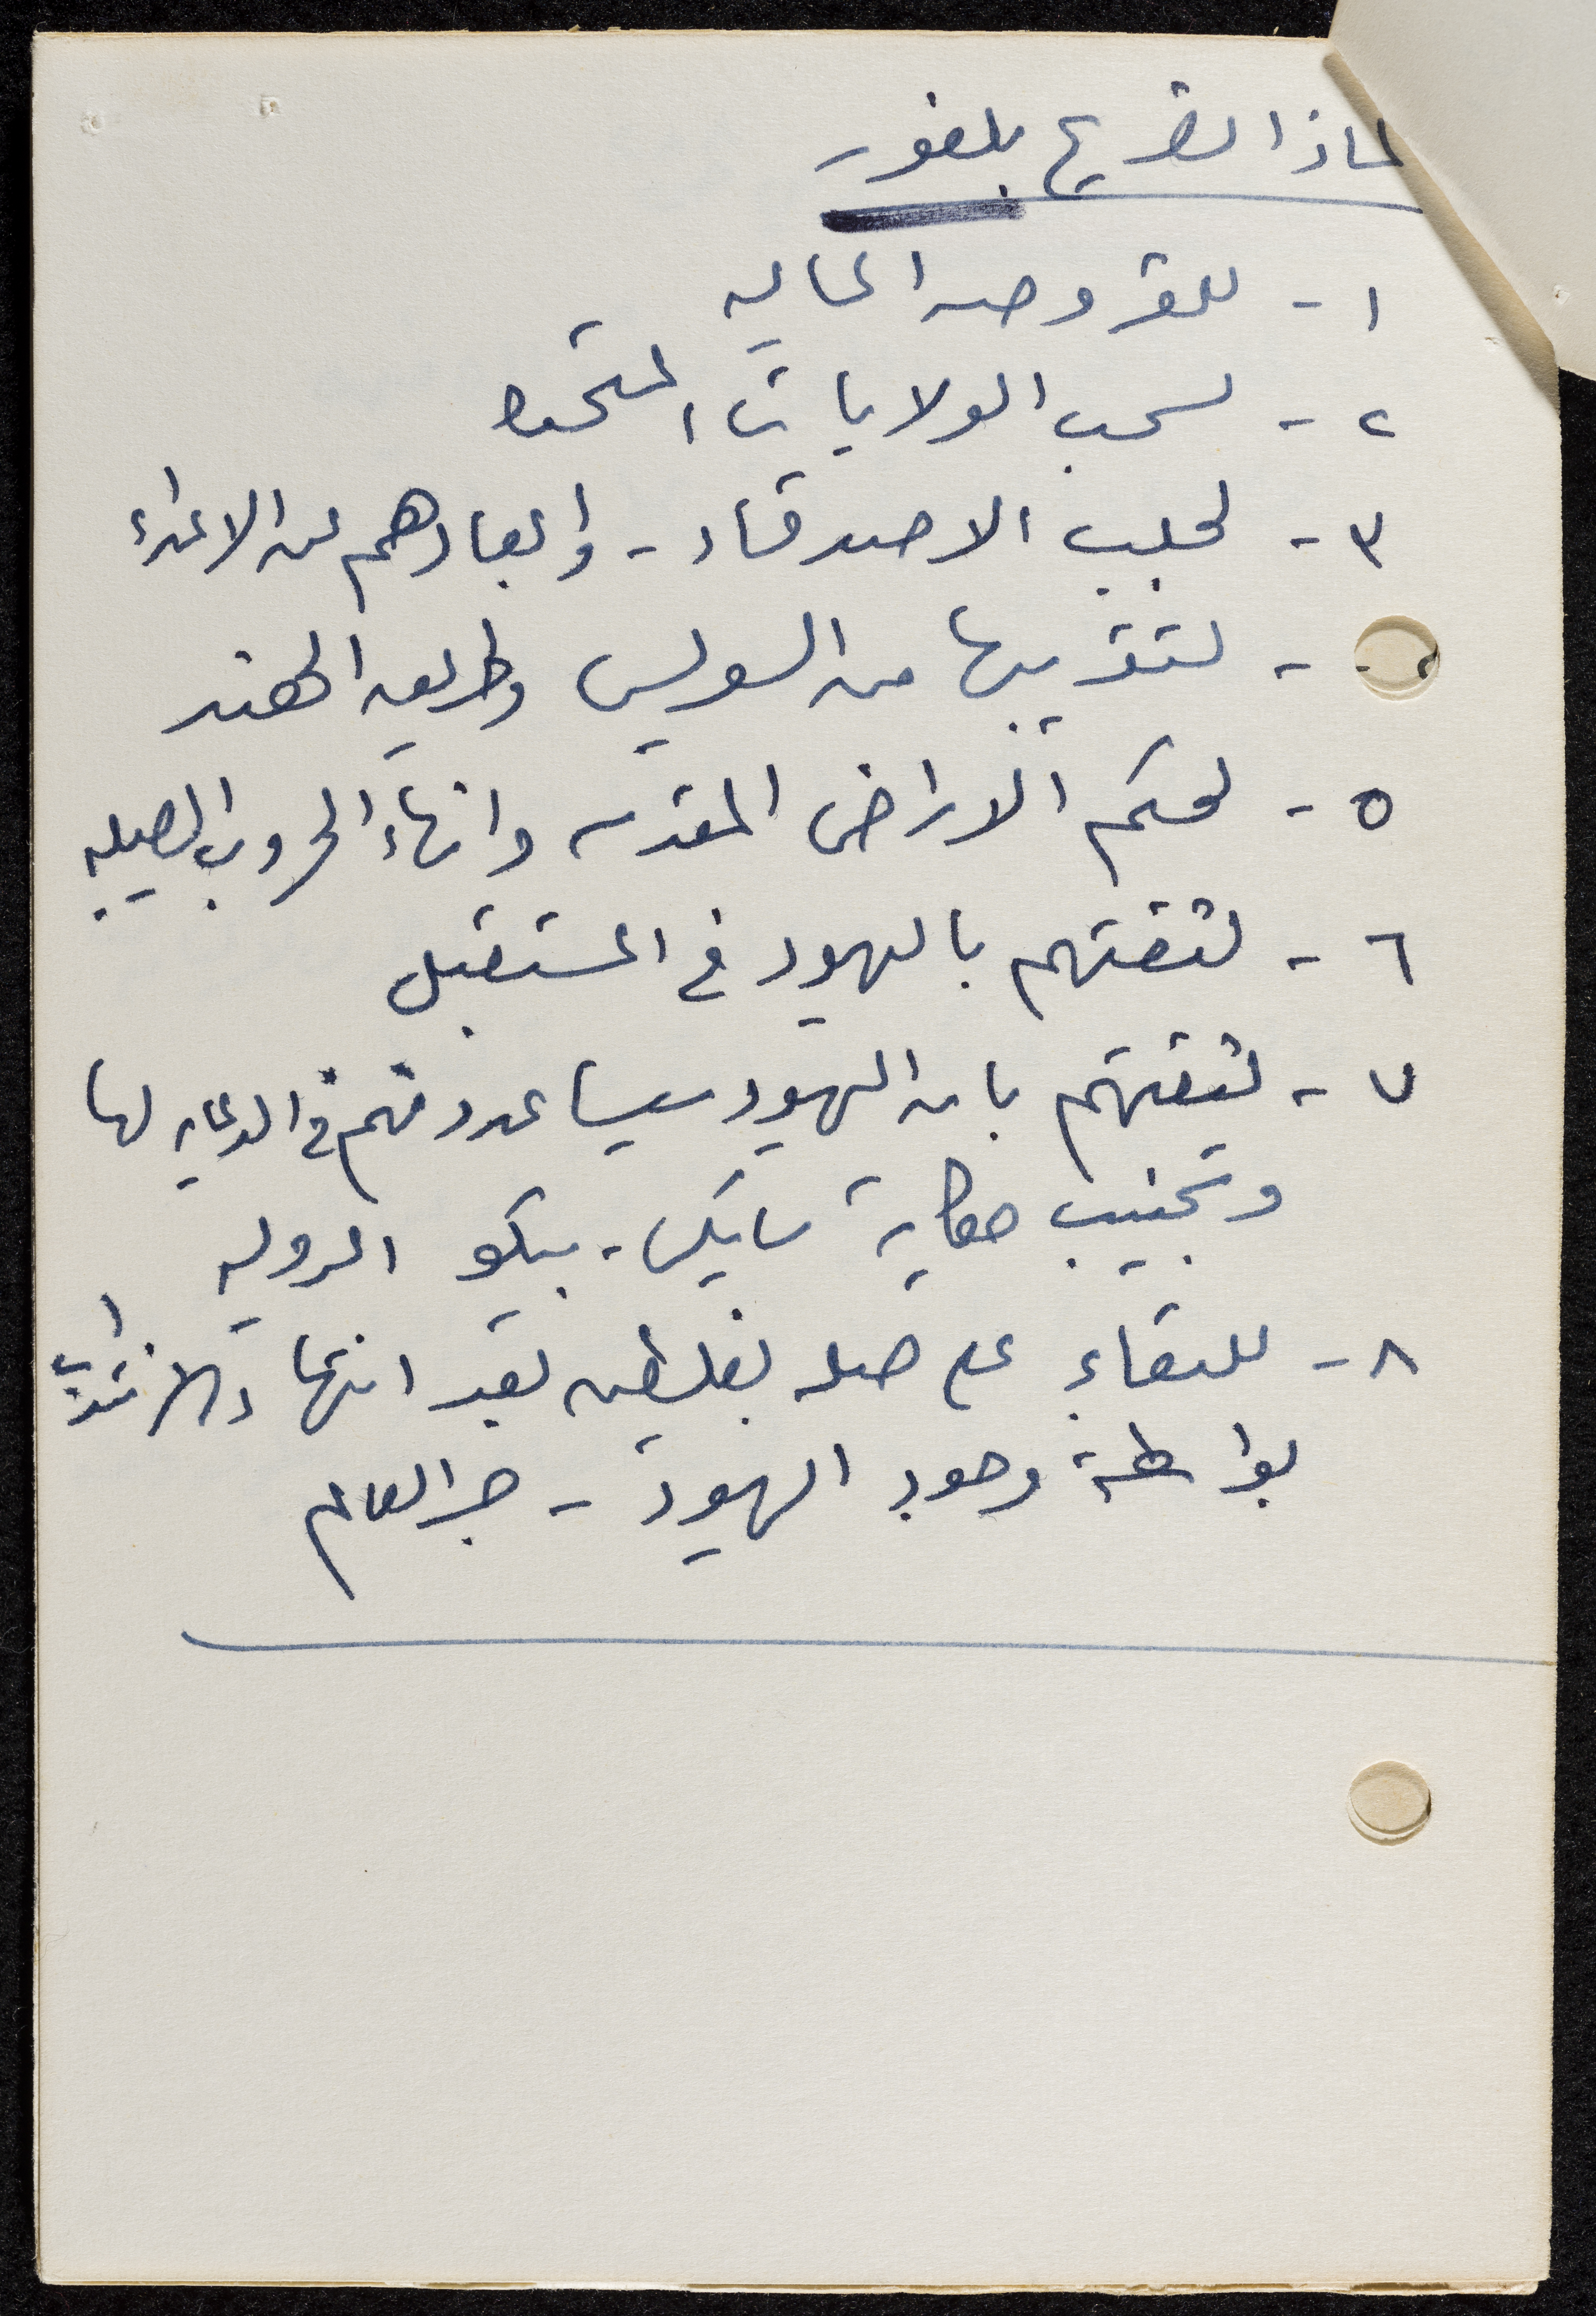 لماذا تصريح بلفور
١ - للقروض الماليه
٢ - لسحب الولايات المتحده
٣ - لجلب الاصدقاء - وابعادهم عن الاعداء
- لتقريبها من السويس وطريق الهند
٥ - لحكم الاراضي المقدسه وانهاء الحروب الصليبيه
٦ - لثقتهم باليهود في المستقبل
٧ - لثقتهم بان اليهود سيساعدونهم في الدعايه لها
وتجنيب حكاية سايكس - بيكو الدوليه
٨ - للبقاء على صله بفلسطين بعد انتهاء الانتداب
بواسطة وجود اليهود - العالم